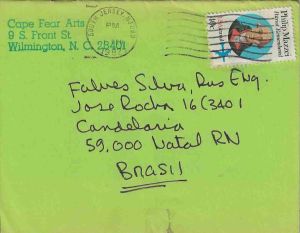 Cape Fear Arts
9 S. Front St.
Wilmington, N. C. 28401
SOUTH JERSEY
PM
Philip Mazzei
Patriot Remembered
Falves Silva, Rus Eng.
Jose Rocha 16(3401
Candelaria
59,000 Natal RN
BRASIL